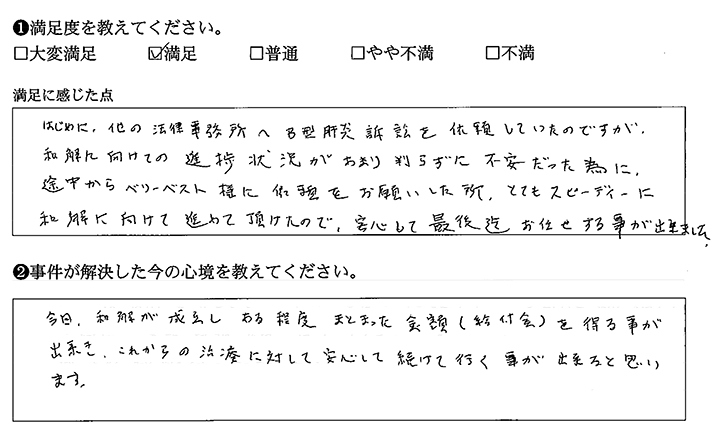 ❶満足度を教えてください。
□大変満足 ☑満足 □普通 □やや不満 □不満
満足に感じた点
はじめに、他の法律事務所へB型肝炎訴訟を依頼していたのですが、
和解に向けての進捗状況があまり判らずに不安だった為に、
途中からベリーベスト様に依頼をお願いした所、とてもスピーディーに
和解に向けて進めて頂けたので、安心して最後迄お任せする事が出来ました。
❷事件が解決した今の心境を教えてください。
今回、和解が成立しある程度まとまった金額(給付金)を得る事が
出来き、これからの治療に対して安心して続けて行く事が出来ると思い
ます。